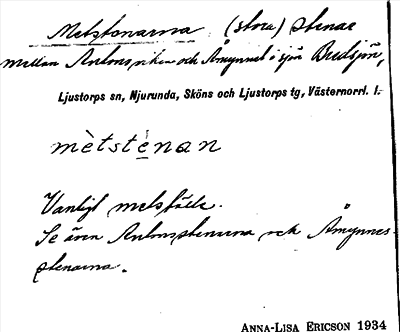 Metstenarna (stora) stenar
mellan Antonsviken och Åmynnet i sjön Bredsjön,
Ljustorps sn, Njurunda, Sköns och Ljustorps tg, Västernorrl. l.
mètstènan
Vanligt metställe.
Se även Antonstenarna och Åmynnes-
stenarna.
ANNA-LISA ERICSON 1934